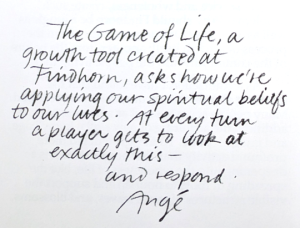 The Game of Life, a
growth tool created at
Findhorn, asks how we're
applying our spiritual beliefs
to our lives. At every turn
a player gets to look at
exactly this —
and respond.
Angé